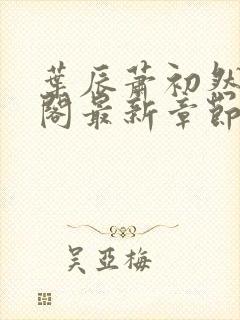 葉辰蕭初然
閣最新章節
吴亞梅